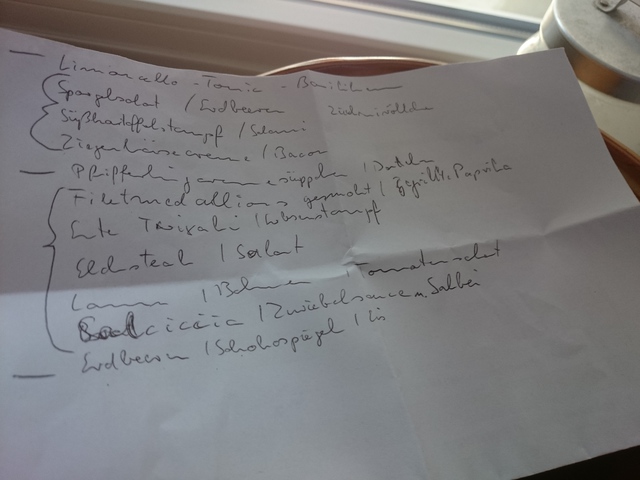 Limoncello - Tonic - Basilikum
Spargelsalat / Erdbeeren
Süßkartoffelstampf / Salami
Ziegenkäsecreme / Bacon
Pfifferlingcremesüppchen / Datteln
Filetmedallions gemacht / Gegrillte Paprika
Ente Teriyaki / Erbsenstampf
Elchsteak / Salat
Lamm / Bohnen Tomatensalat
Salciccia / Zwiebelsauce m. Salbei
Erdbeeren / Schokospiegel / Eis